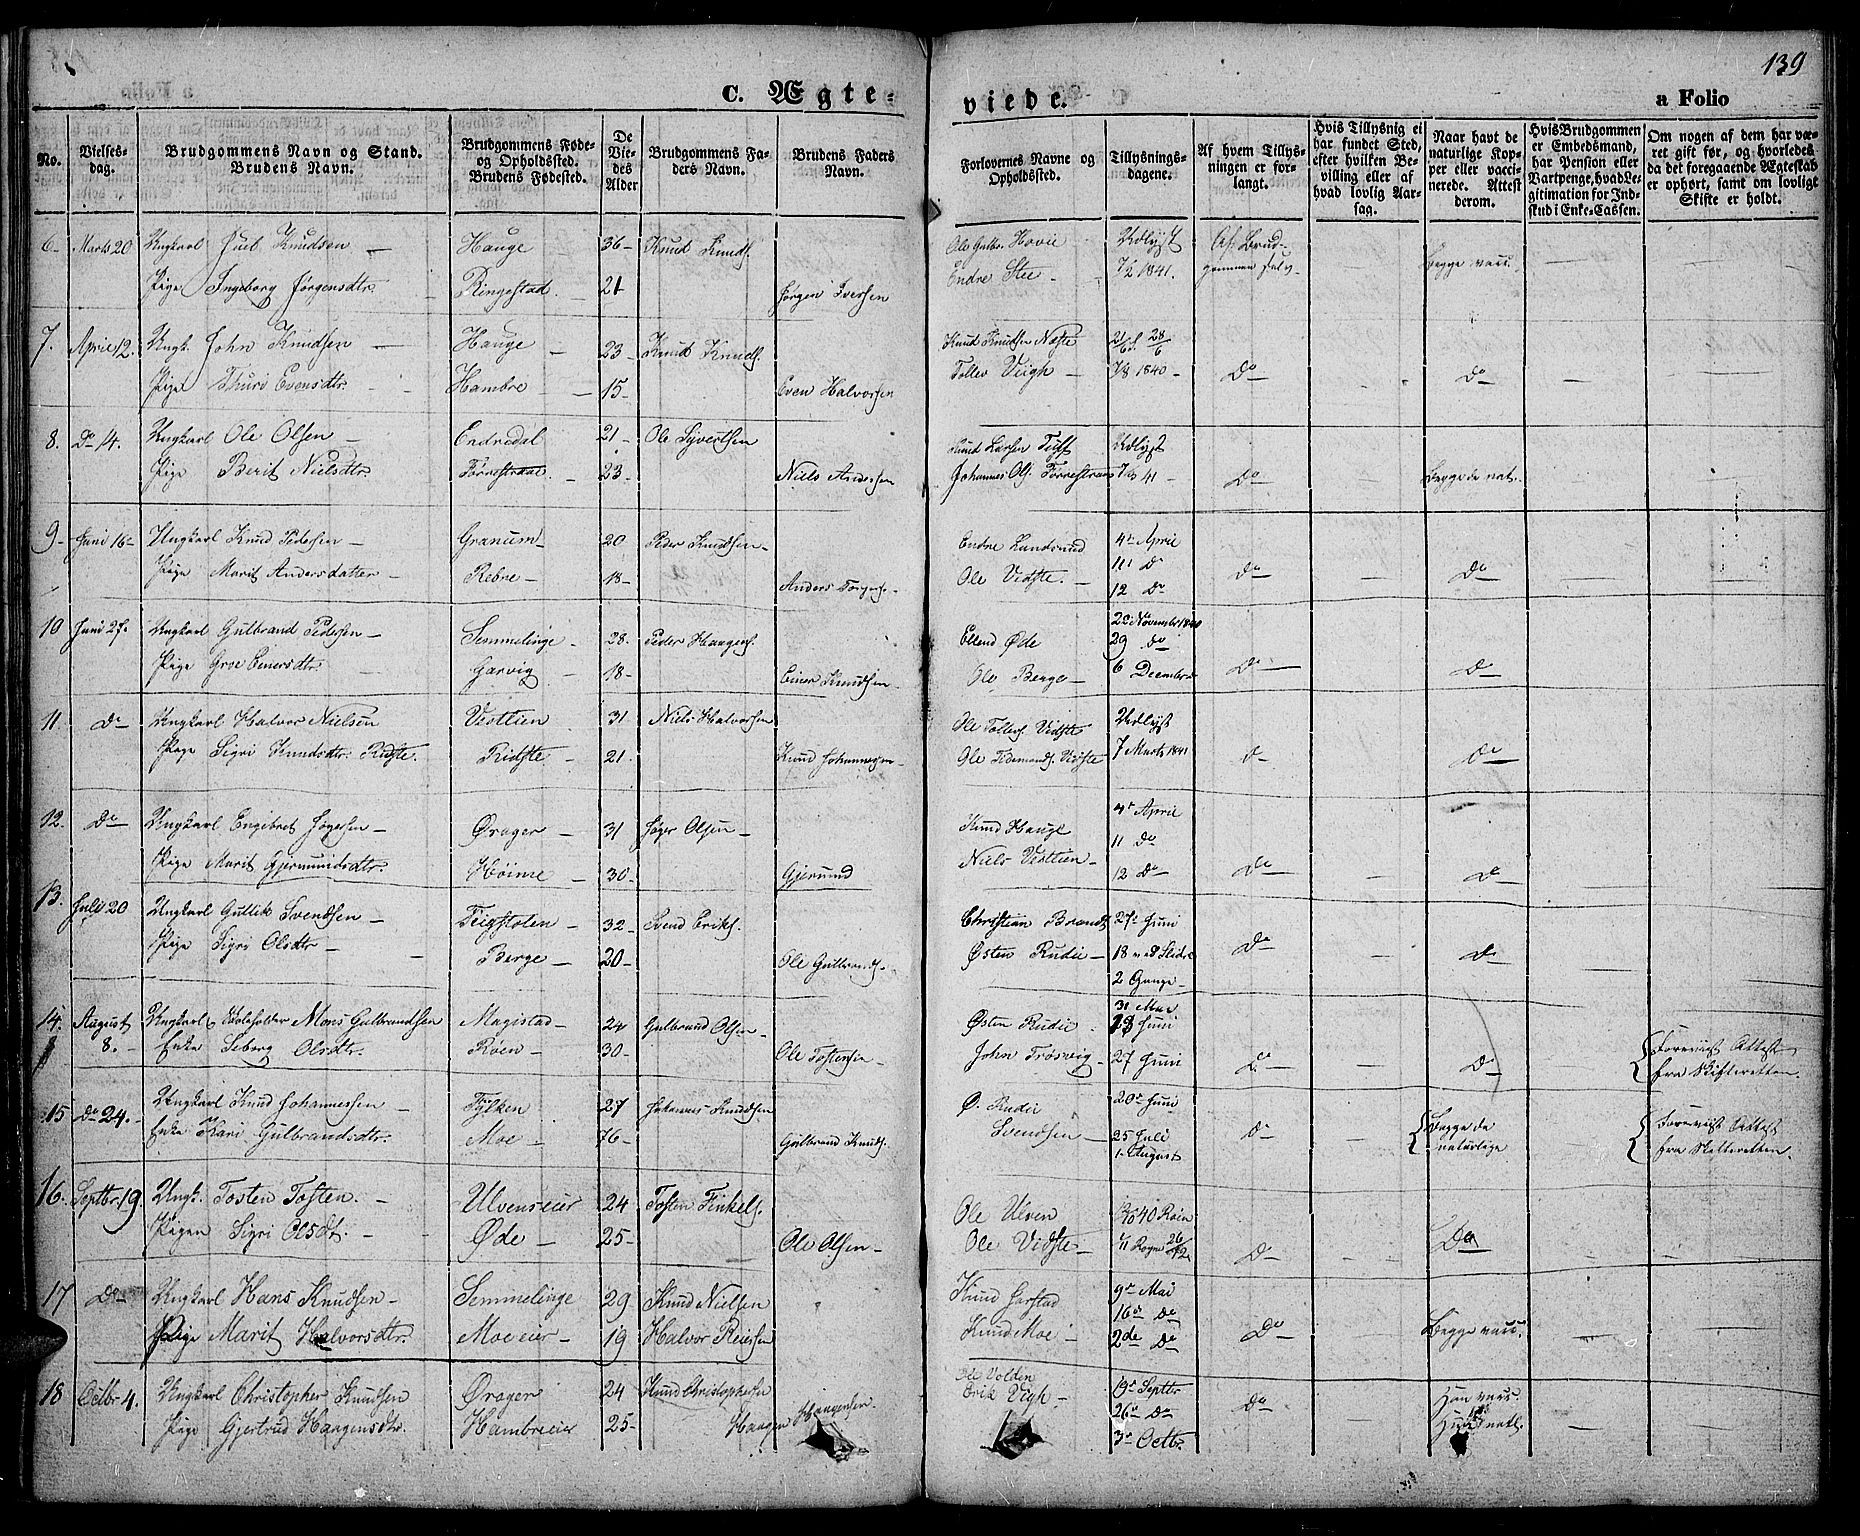 139
C. Ægte-
viede.
a Folio
No.
Vielses-
dag.
Brudgommens Navn og Stand.
Brudens Navn.
Brudgommens Føde-
og Opholdssted.
Brudens Fødested.
De
Vie-
des
Alder
Brudgommens Fa-
ders Navn.
Brudens Faders
Navn.
Forlovernes Navne og
Opholdssted.
Tillysnings-
dagene.
Af hvem Tillys-
ningen er for-
langt.
Hvis Tillysnig ei
har fundet Sted,
efter hvilken Be-
villing eller af
hvad lovlig Aar-
sag.
Naar havt de
naturlige Kop-
per eller vacci-
nerede. Attest
derom.
Hvis Brudgommen
er Embedsmand,
har Pension eller
Vartpenge, hvad Le-
gitimation for Ind-
skud i Enke-Cassen.
Om nogen af dem har væ-
ret gift før, og hvorledes
da det foregaaende Ægteskab
er ophørt, samt om lovligt
Skifte er holdt.
6- Marts 20 Ungkarl Juul Knudsen - Hauge 36- Knud Knuds. Ole Gulbr. Hovie Udlyst Af Brud-
Pige Ingeborg Jørgensdtr. Ringestad 21 Jørgen Iversen Endre Stee - 7/2 1841. gommen selv - Begge vacc.
7. April 12. Ungk. John Knudsen - Hauge - 23- Knud Knuds. Knud Knudsen Næste 21/6 28/6
Pige Thuri Evensdtr. Hambre - 15- Even Halvorsen Tollev Viigh - 7/8 1840- Do Do
8. Do 14. Ungkarl Ole Olsen - Endredal 21- Ole Syvertsen Knud Larsen Udlyst
Pige Berit Nielsdtr. Førrestraae 23- Niels Andersen Johannes Ols. Førrestraae 41- Do Begge de nat.
9- Juni 16- Ungkarl Knud Pedersen - Granum- 20 Peder Knudsen- Endre Landsend 4de April
Pige Marit Andersdatter - Rebne - 18- Anders Ole Vidste. 11 Do
12 Do Do Do
10 Juni 27. Ungkarl Gulbrand Pedersen - Semmelinge - 28. Peder Haagens. Ellend Øde 22 November 1840
29 do
Pige Groe Einersdtr. Garvig 18- Einer Knudsen Ole Berge- 6 December Do Do
11. Do Ungkarl Halvor Nielsen Vestlien 31 Niels Halvorsen Ole Tollefs. Vidste Udlyst
Pige Sigri Knudsdtr. Ridste. Ridste - 21. Knud Johannesen- Ole Tidemands. Vidste 7 Marts 1841 Do Do
12. Do Ungkarl Engebret Jøgersen - Øragen - 31 Jøger Olsen - Knud Hauge 4de April
11 Do
Pige Marit Gjermundsdtr. Høime - 30- Gjermund Niels Vestlien - 12 Do Do Do
13. Juli 20 Ungkarl Gullik Svendsen - Feigstolen - 32- Svend Eriks. Christian Brandt 27de Juni
Pige Sigri Olsdtr - Berge - 20- Ole Gulbrands. Østen Rudie 18 ved Slidre
2 Gange- Do Do
14. August Ungkarl Mons Gulbrandsen Magistad- 24 Gulbrand Olsen - Østen Rudie 31 Mai
13 Juni
8. - Enke Seborg Olsdtr. Røen - 30- Ole Tostensen John Trøsvig 27 Juni Do Do Forevist Attest
fra Skifteretten.
15 Do 24. Ungkarl Knud Johannessen - Fylken - 27 Johannes Knudsen Ø. Rudie 20de Juni
Enke Kari Gulbrandsdtr. Moe - 76- Gulbrand Knuds. Svendsen - 25 Juli
1. August Do Begge de
naturlige Forevist Attest
fra Skifteretten.
16. Septbr. 19. Ungk. Tosten Tosten. - Ulvenseier 24 Tosten Finkels. Ole Ulven 40 Røen
Pigen Sigri Olsdt. - Øde - 25- Ole Olsen - Ole Vidste - Rogne 26/12 Do Do
17 Do Ungkarl Hans Knudsen - Semmelinge 29 Knud Nielsen Knud Harstad 9de Mai
16de Do
Pige Marit Halvorsdtr. Moeeier - 19 Halvor Reiersen Knud Moe - 2de Do Do Begge vacc.
18 Octbr 4. Ungkarl Christopher Knudsen Øragen 24 Knud Christophersen Ole Volden
Erik Vigh - 19de Septbr
26de Do Do Han vacc.
Pige Gjertrud Haagensdtr. Hambreeier 25- Haagen Haagensen 3de Octbr. Hun natl.